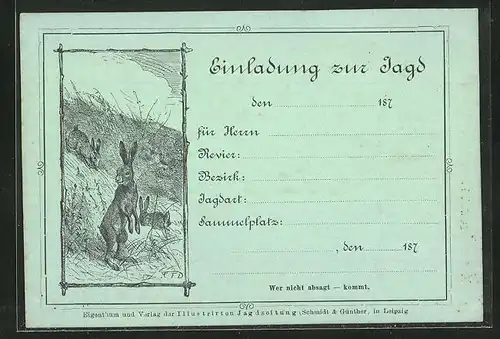 Einladung zur Jagd
den 187
für Herrn
Revier:
Bezirk:
Jagdart:
Sammelplatz:
, den 187
Wer nicht absagt — kommt.
FFD
Eigenthum und Verlag der Illustrirten Jagdzeitung (Schmidt & Günther, in Leipzig